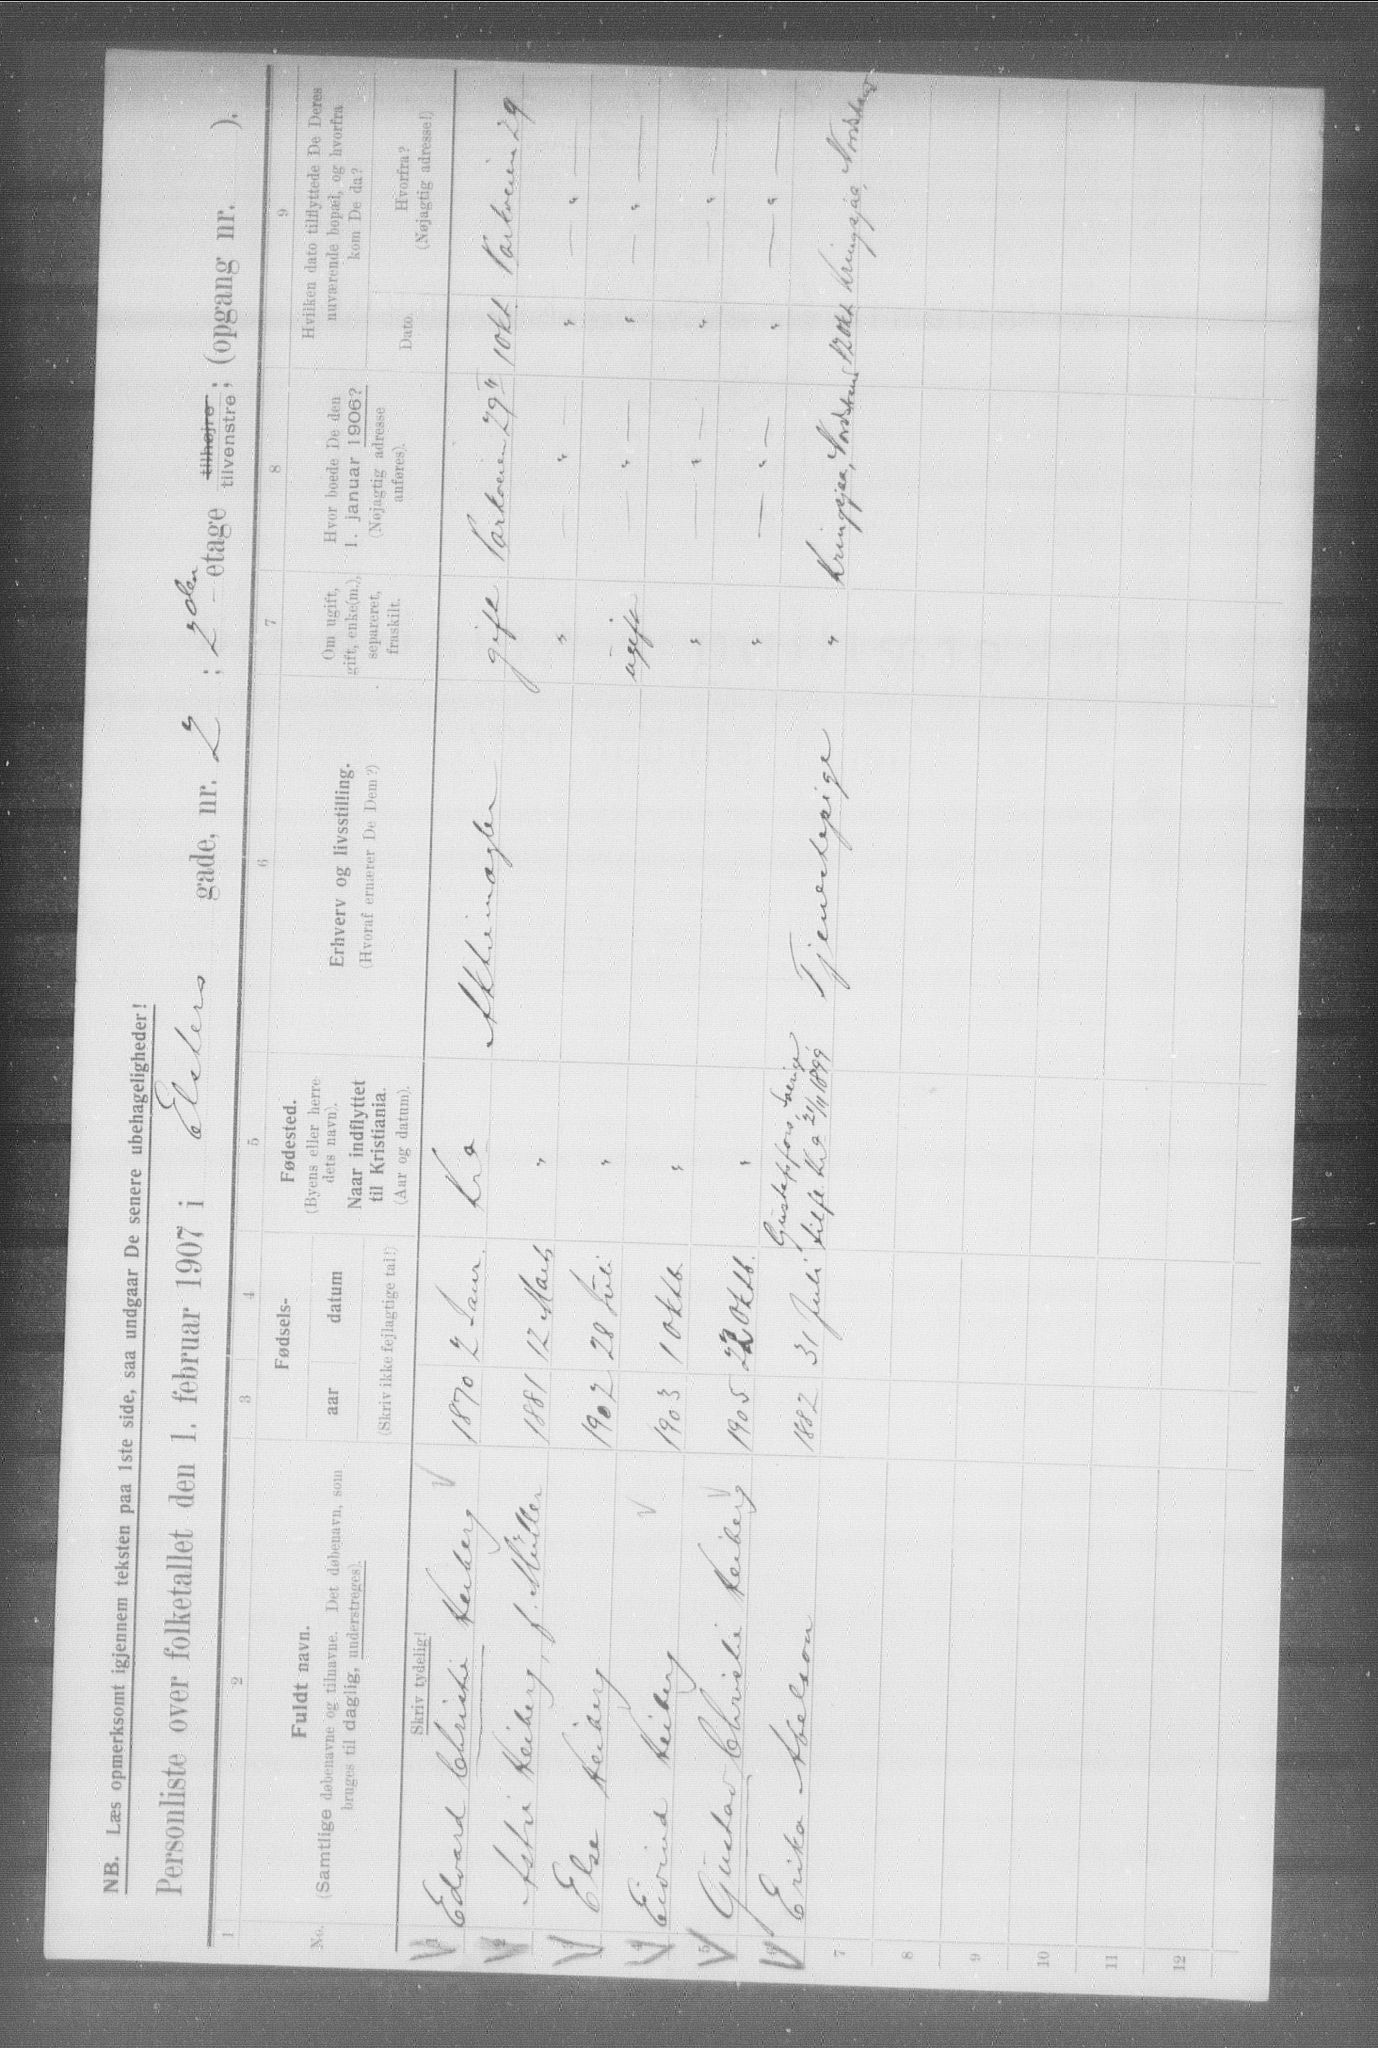 NB. Læs opmerksomt igjennem teksten paa 1ste side, saa undgaar De senere ubehageligheder!
Personliste over folketallet den 1. februar 1907 i Elsters gade, nr. 2 ; 2den etage tilhøjre tilvenstre ; (opgang nr. ).
1 2 3 4 5 6 7 8 9
No.
Fuldt navn.
(Samtlige døbenavne og tilnavne. Det døbenavn, som
bruges til daglig, understreges).
Fødsels-
aar datum
(Skriv ikke fejlagtige tal!)
Fødested.
(Byens eller herre
dets navn).
Naar indflyttet
til Kristiania.
(Aar og datum).
Erhverv og livsstilling.
(Hvoraf ernærer De Dem?)
Om ugift,
gift, enke(m.),
separeret,
fraskilt.
Hvor boede De den
1. januar 1906?
(Nøjagtig adresse
anføres).
Hvilken dato tilflyttede De Deres
nuværende bopæl, og hvorfra
kom De da?
Dato
Hvorfra?
(Nøjagtig adresse!)
Skriv tydelig!
1 Edvard Christie Heiberg 1870 2 Janr. Kra Aktiemægler gift Parkveien 29 1 Okt. Parkveien 29
2 Astri Heiberg, f. Müller 1881 12 Marts " " — " — " — " —
3 Else Heiberg 1902 28 Juli " ugift — " — " — " —
4 Eivind Heiberg 1903 1 Oktb. " " — " — " — " —
5 Gustav Christie Heiberg 1905 22 Oktb. " " — " — " — " —
6 Erika Abelson 1882 31 Juli Gustafsfors Sverige
tilfl. Kra 21/11 1899 Tjenestepige " Kringsjaa, Nordstrand 12 Okt Kringsjaa, Nordstrand
7
8
9
10
11
12